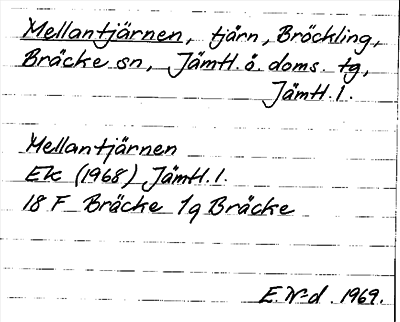 Mellantjärnen, tjärn, Bröckling,
Bräcke sn, Jämtl. ö. doms. tg,
Jämtl. l.
Mellantjärnen
Ek (1968) Jämtl. l.
18 F Bräcke 1q Bräcke
E. N-d. 1969.